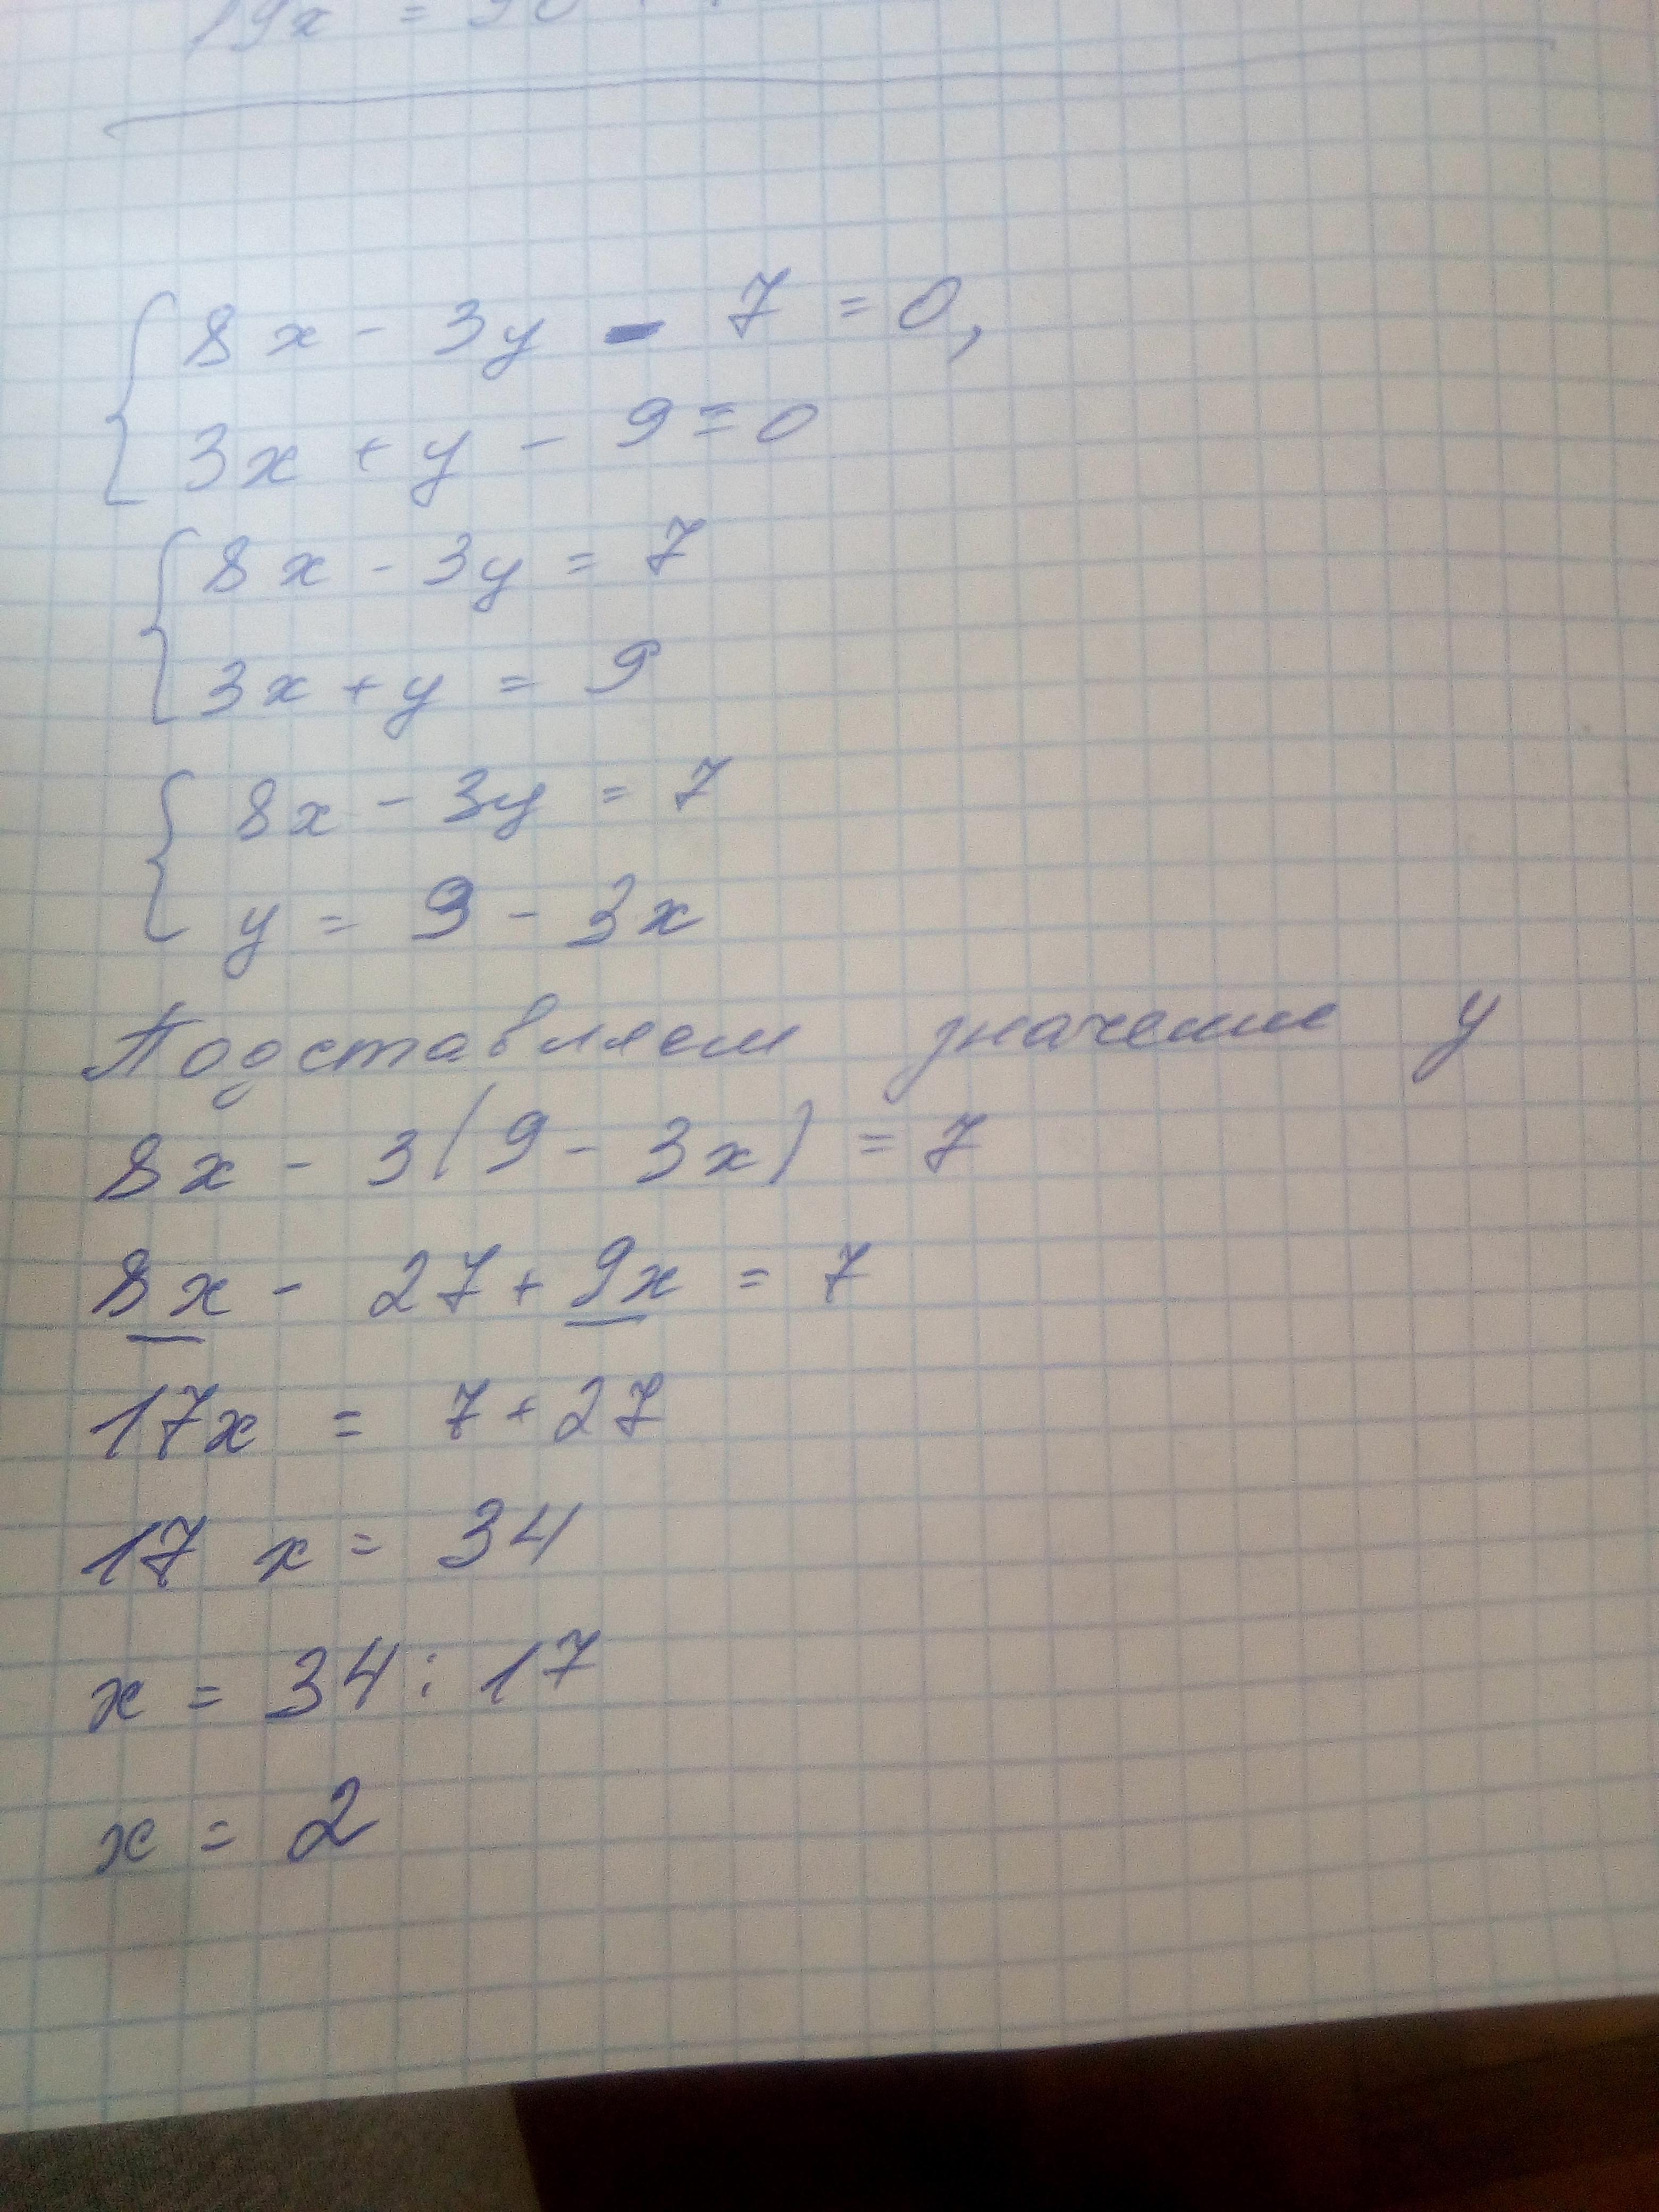 19x =
{ 8x - 3y - 7 = 0,
3x + y - 9 = 0
{ 8x - 3y = 7
3x + y = 9
{ 8x - 3y = 7
y = 9 - 3x
Подставляем значение y
8x - 3(9 - 3x) = 7
8x - 27 + 9x = 7
17x = 7 + 27
17 x = 34
x = 34 : 17
x = 2